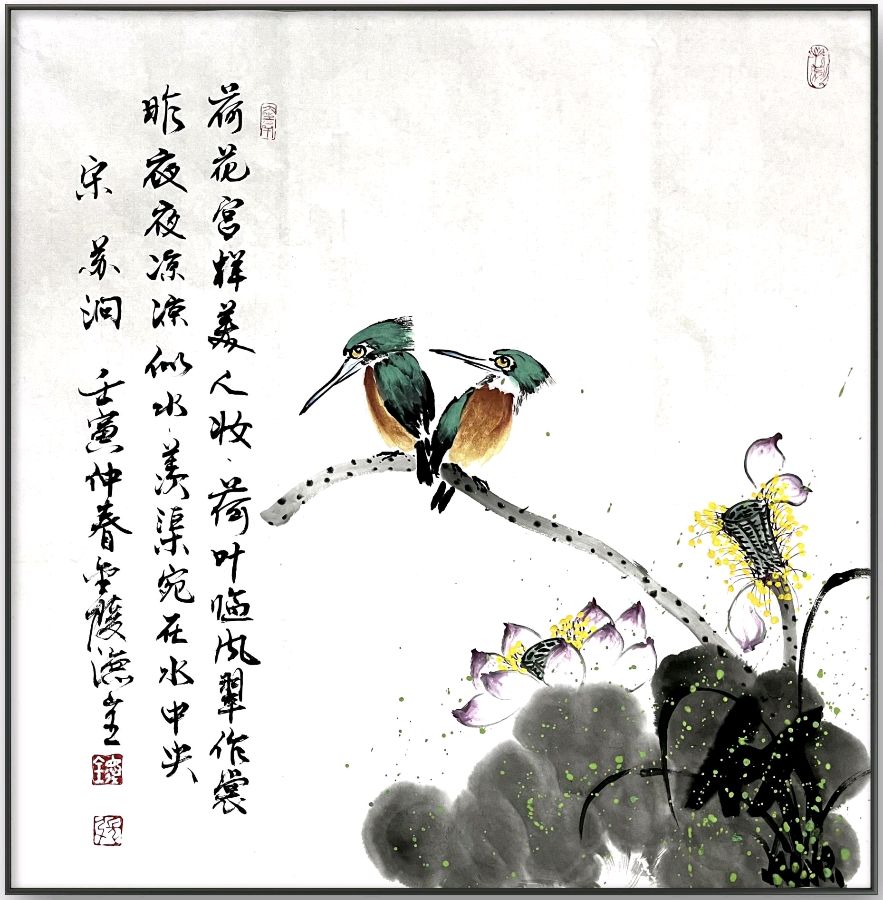 荷花宫样美人妆荷叶临风翠作裳
昨夜夜凉凉似水羡渠宛在水中央
宋 苏泂 壬寅仲春